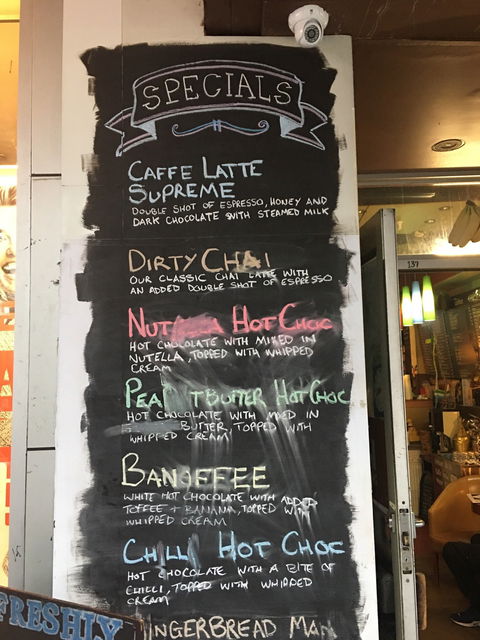 SPECIALS
CAFFE LATTE
SUPREME
DOUBLE SHOT OF ESPRESSO, HONEY AND
DARK CHOCOLATE WITH STEAMED MILK
DIRTY CHAI
OUR CLASSIC CHAI LATTE WITH
AN ADDED DOUBLE SHOT OF ESPRESSO
NUTELLA HOT CHOC
HOT CHOCOLATE WITH MIXED IN
NUTELLA, TOPPED WITH WHIPPED
CREAM
PEA TBUTTER HOT CHOC
HOT CHOCOLATE WITH MIXED IN
BUTTER, TOPPED WITH
WHIPPED CREAM
BANOFFEE
WHITE HOT CHOCOLATE WITH ADDED
TOFFEE + BANANA, TOPPED WITH
WHIPPED CREAM
CHILLI HOT CHOC
HOT CHOCOLATE WITH A BITE OF
CHILLI, TOPPED WITH WHIPPED
CREAM
INGERBREAD MAN
FRESHLY
137